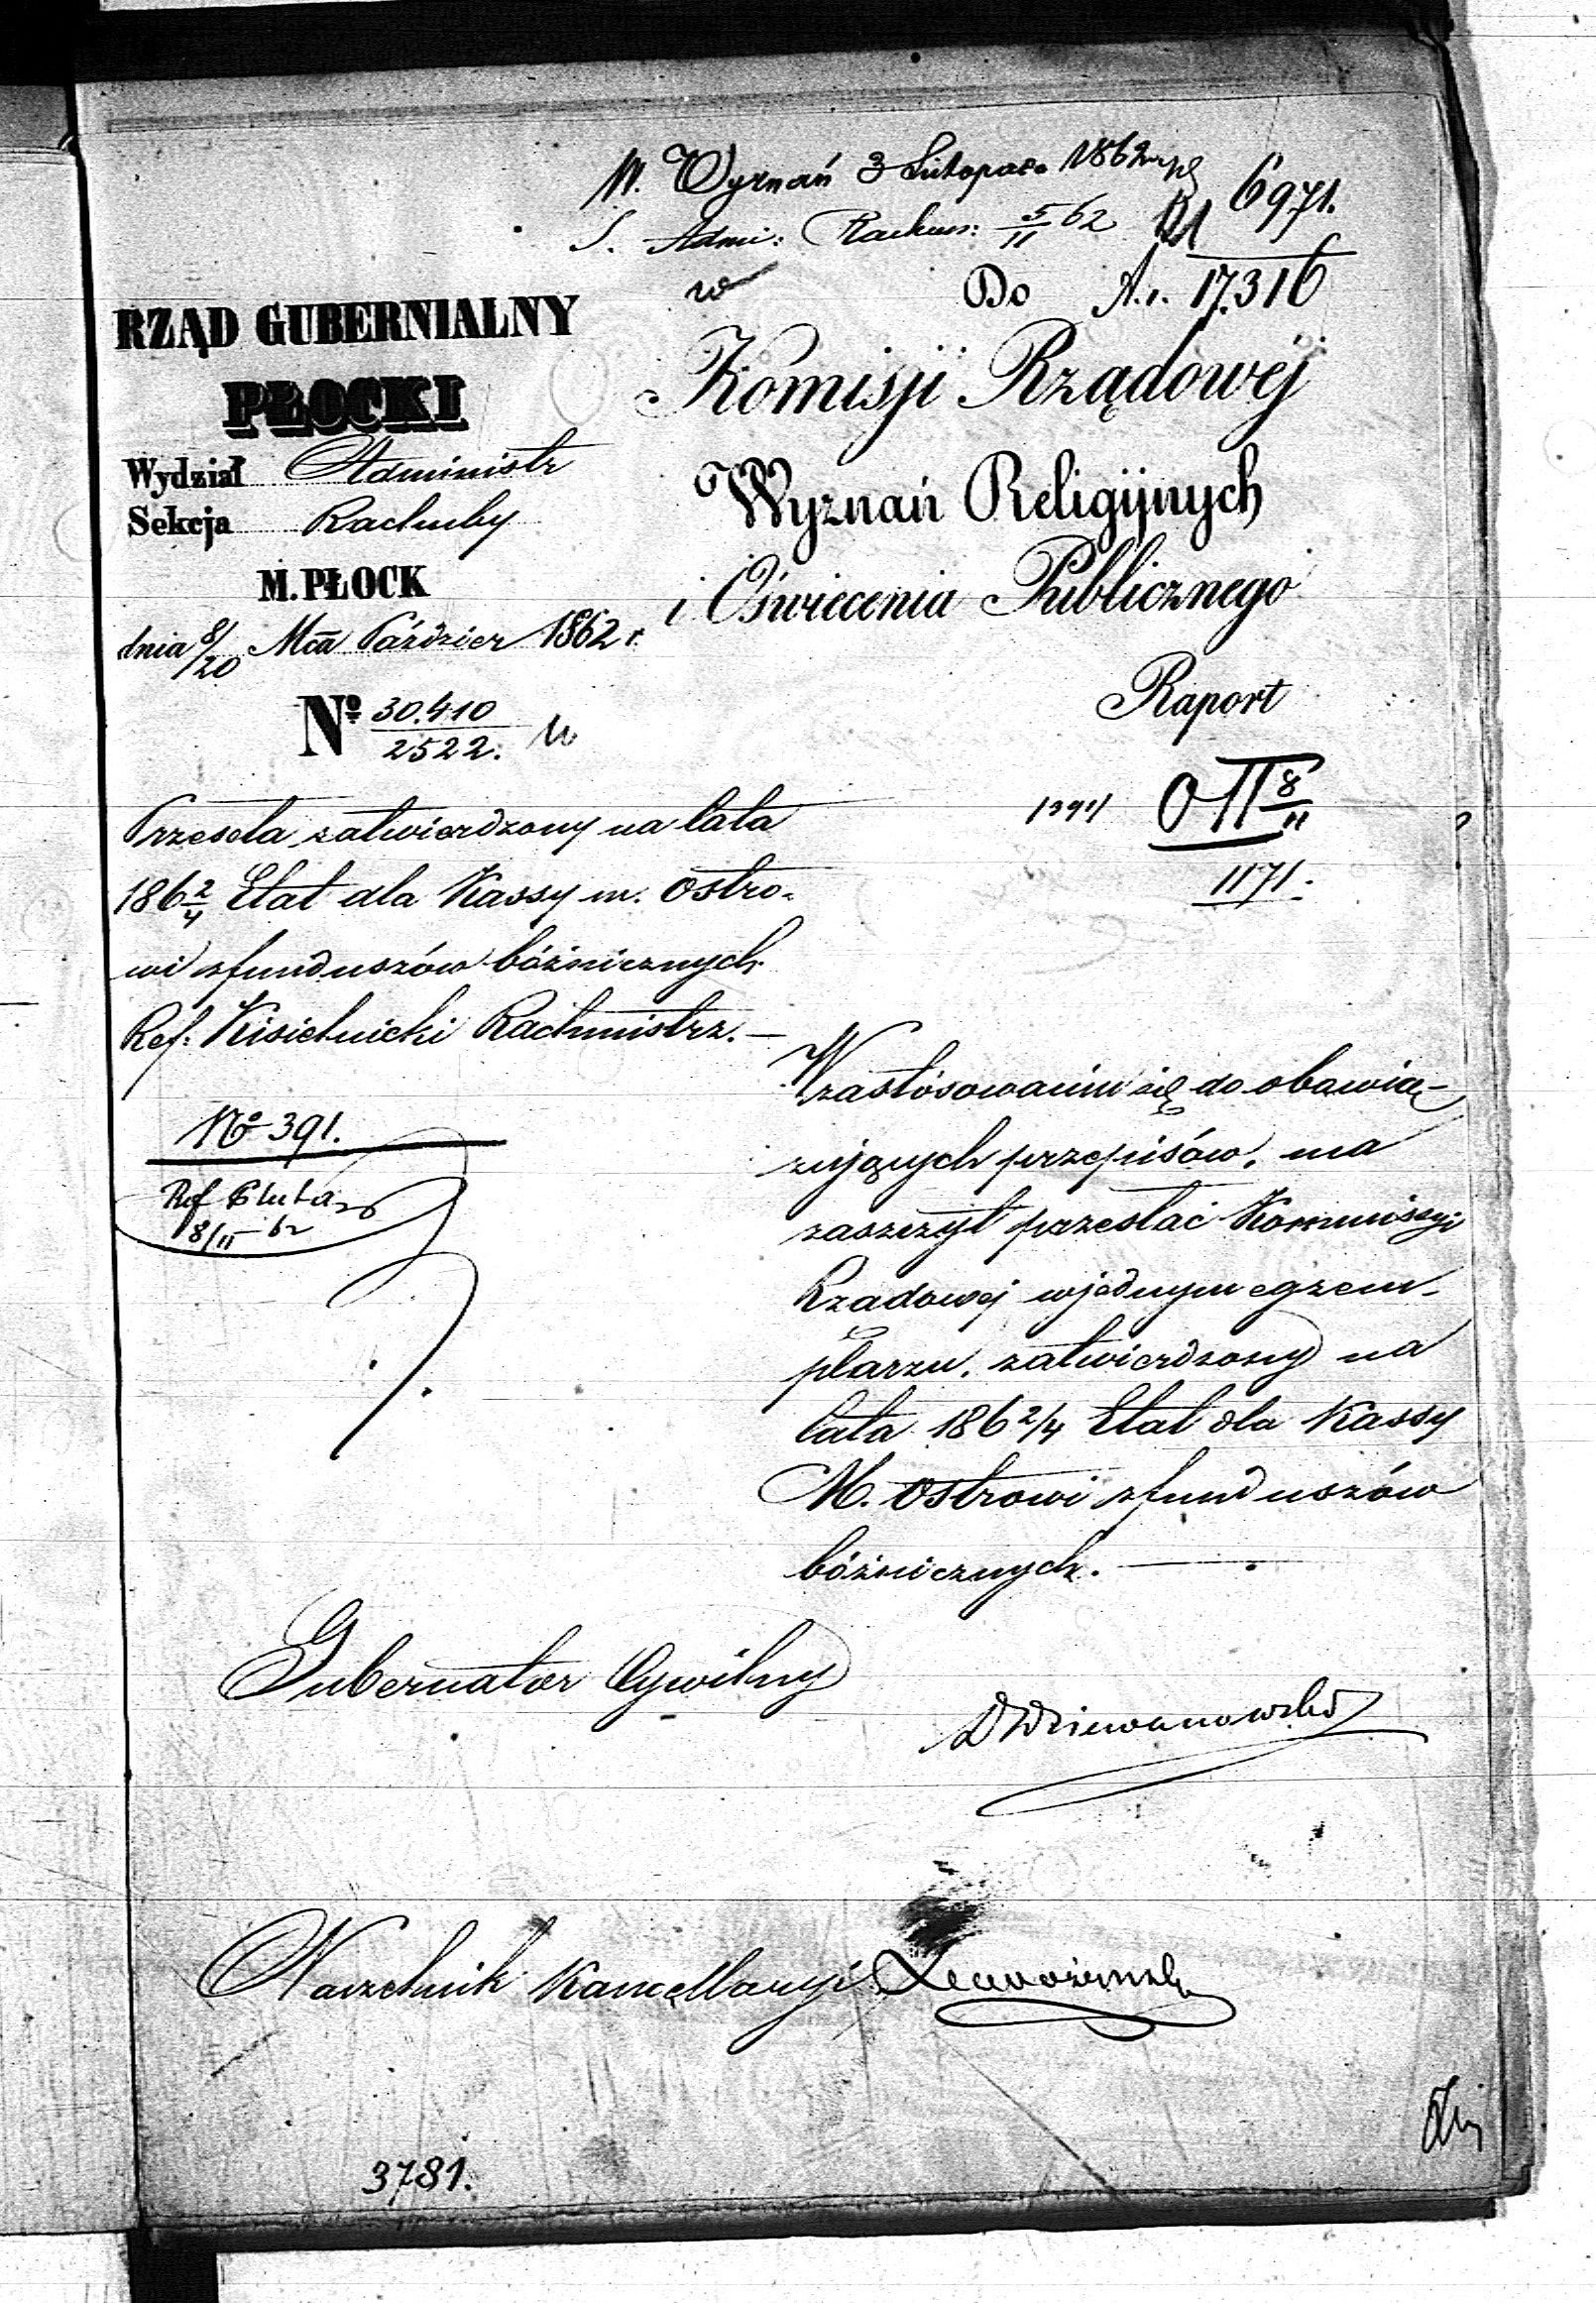 W. Wyznań 3 Listopada 1862
S. Admi: Rachun: 5/11 62
6971.
Do A.r. 17.316
RZĄD GUBERNIALNY
PŁOCKI
Wydział Administr
Sekcja Rachuby
M. PŁOCK
dnia 8/20 Mca Paździer 1862 r.
No. 30.410/2522.
Komisji Rządowéj
Wyznań Religijnych
i Oświecenia Publicznego
Raport
O II 8/11
1171.
Przeseła zatwierdzony na lata
186 2/4 Etat dla Kassy m. Ostro-
wi z funduszów bóżnicznych
Ref: Kisielnicki Rachmistrz.—
No 391.
Ref
8/11 62
W zastósowaniu się do obowią-
zujących przepisów, ma
zaszczyt przesłać Kommissyi
Rządowej w jednym egzem-
plarzu, zatwierdzony na
lata 186 2/4 Etat dla Kassy
M. Ostrowi z funduszów
bóżnicznych.—
Gubernator Cywilny
Naczelnik Kancellaryi
3781.